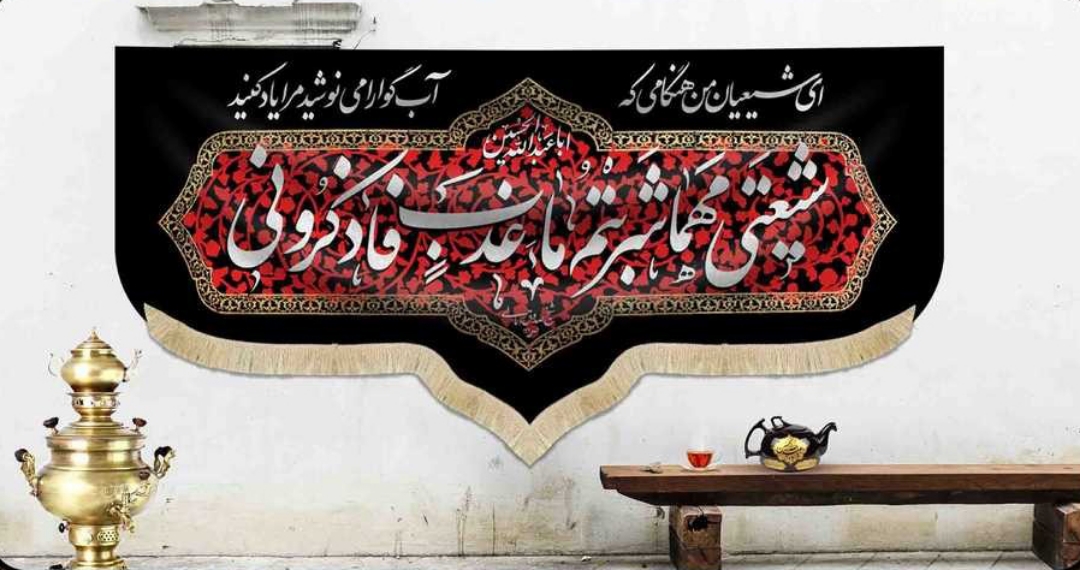 ای شیعیان من هنگامی که آب گوارا می نوشید مرا یاد کنید
اباعبدالله الحسین
شیعَتی مَهما شَرِبْتُم ماءَ عَذبٍ فَاذکُرونی